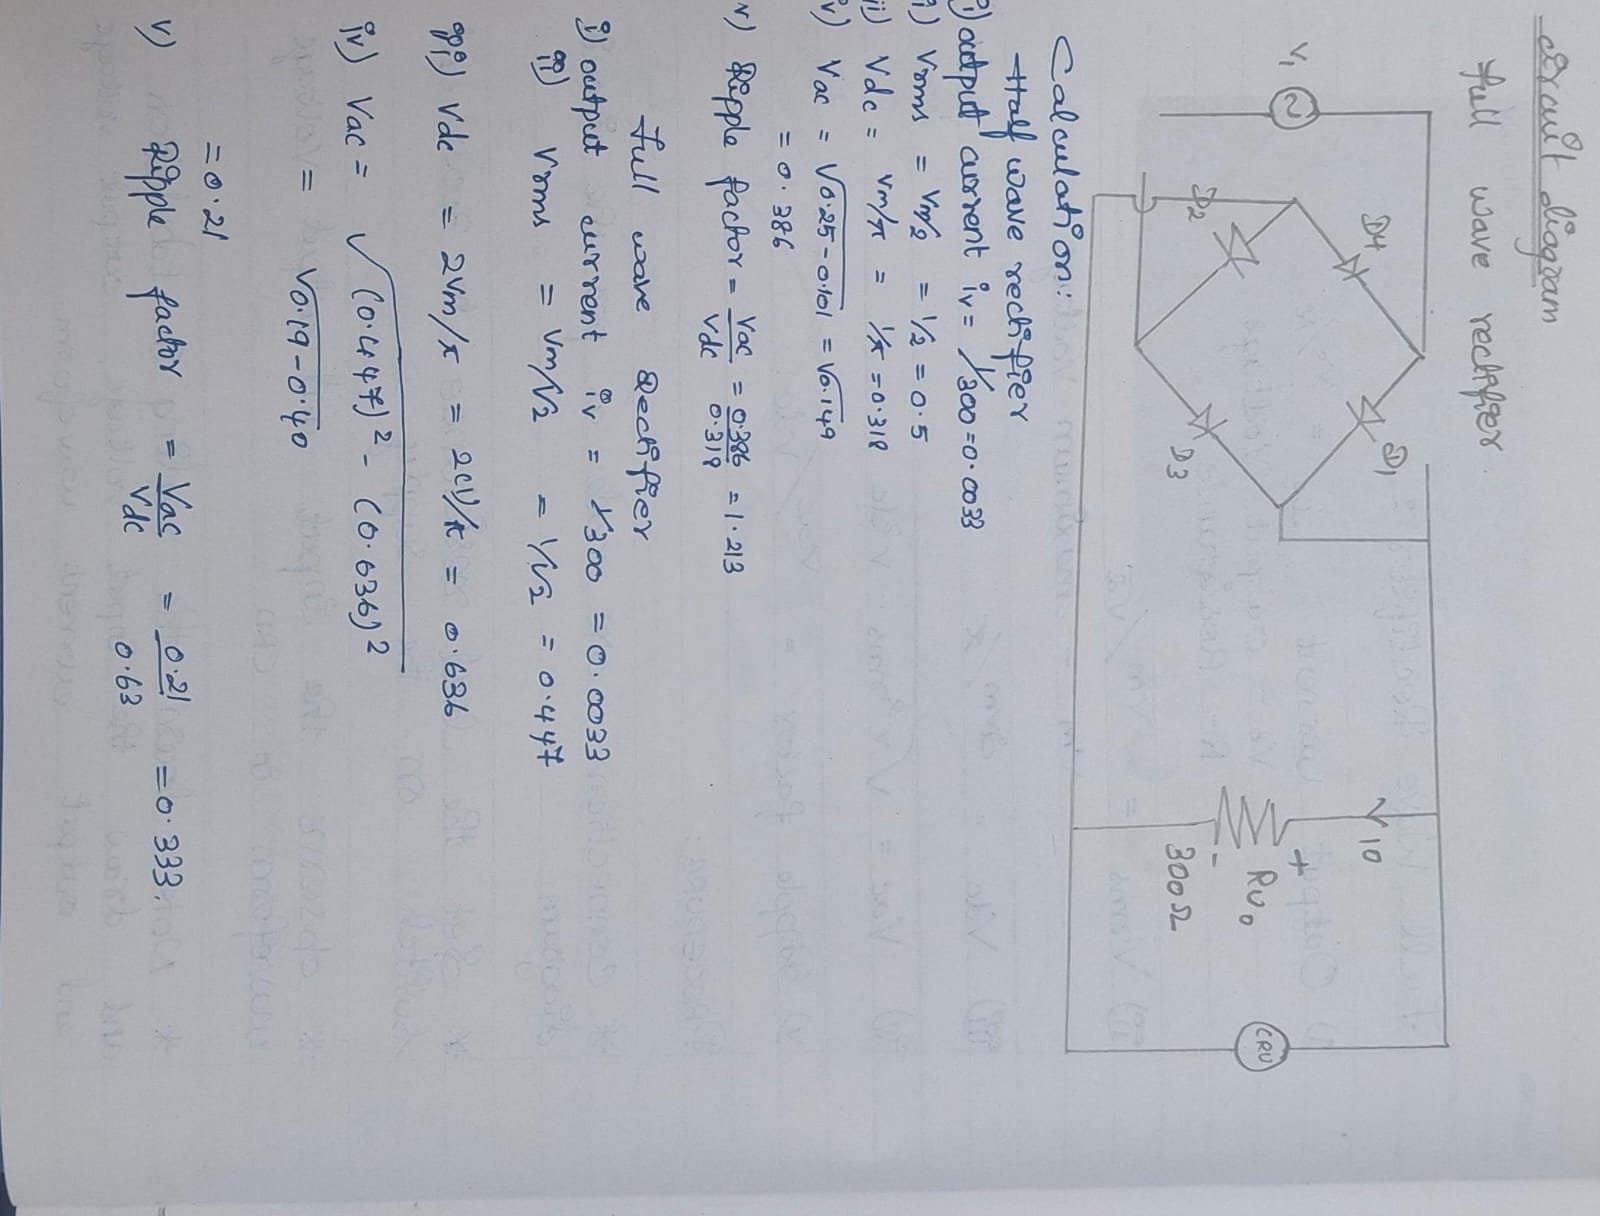 circuit diagram
full wave rectifier
V1
D4
D1
D2
D3
10
+
RV0
-
300Ω
CRO
Calculation:
Half wave rectifier
i) output current iv = 1/300 = 0.0033
i) Vrms = Vm/2 = 1/2 = 0.5
ii) Vdc = Vm/π = 1/π = 0.318
iv) Vac = √0.25-0.101 = √0.149
= 0.386
v) Ripple factor = Vac/Vdc = 0.386/0.318 = 1.213
full wave Rectifier
i) output current iv = 1/300 = 0.0033
ii) Vrms = Vm/√2 = 1/√2 = 0.447
iii) Vdc = 2Vm/π = 2(1)/π = 0.636
iv) Vac = √(0.447)² - (0.636)²
√0.19-0.40
= 0.21
v) Ripple factor = Vac/Vdc = 0.21/0.63 = 0.333.